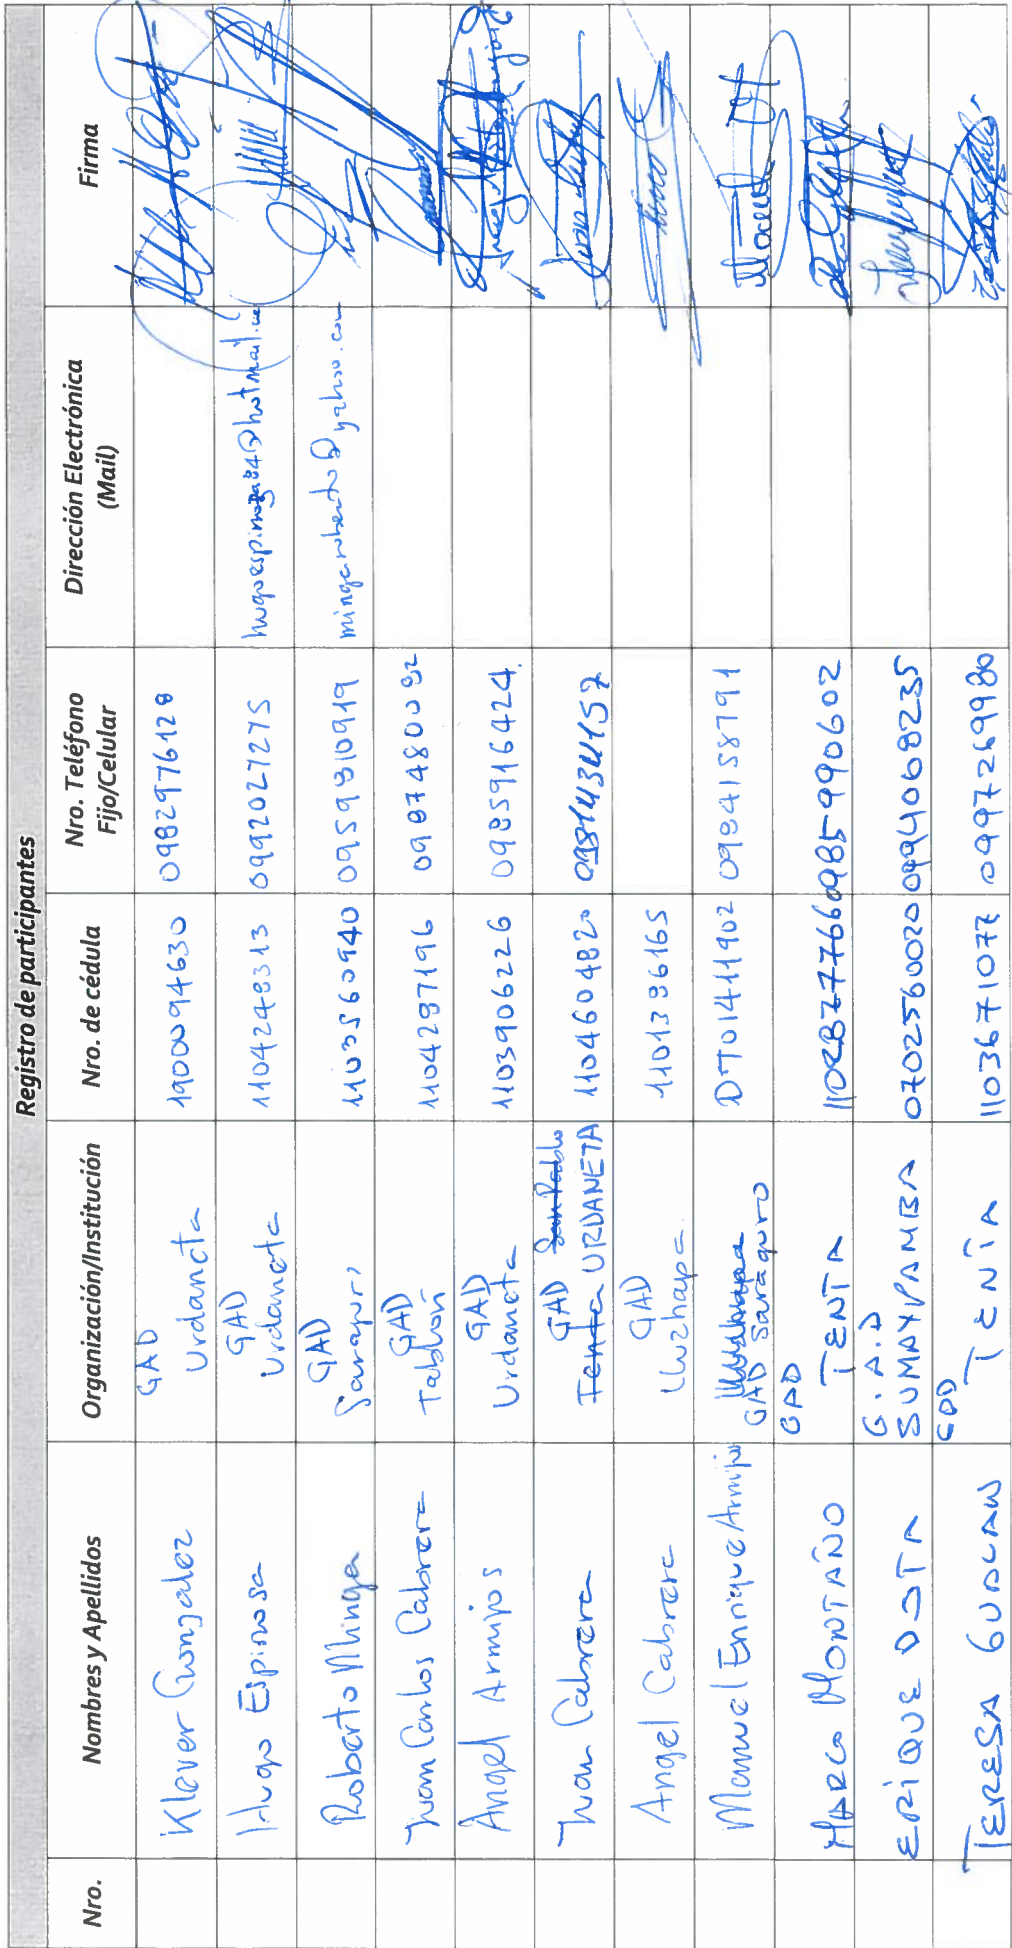 Registro de participantes
Nro. Nombres y Apellidos Organización/Institución Nro. de cédula Nro. Teléfono Fijo/Celular Dirección Electrónica (Mail) Firma
Klever Gonzalez GAD Urdaneta 1900094630 0982976128
Hugo Espinosa GAD Urdaneta 1104248313 0992027275 hugoespinoza84@hotmail.com
Roberto Minga GAD Saraguro 1103560940 0959310919 mingaroberto@yahoo.com
Juan Carlos Cabrera GAD Tablón 1104297196 0987480092
Angel Armijos GAD Urdaneta 1103906226 0985916424.
Juan Cabrera GAD San Pablo Tenta URDANETA 1104604820 0981434157
Angel Cabrera GAD Lluzhapa 1101396165
Manuel Enrique Armijos GAD Saraguro DT01411902 0984158791
MARCO MONTAÑO GAD TENTA 1102877766 0985990602
ERIQUE OTA G.A.D SUMAYPAMBA 0702560020 0994068235
TERESA GUALAN GAD TENTA 1103671077 0997269980